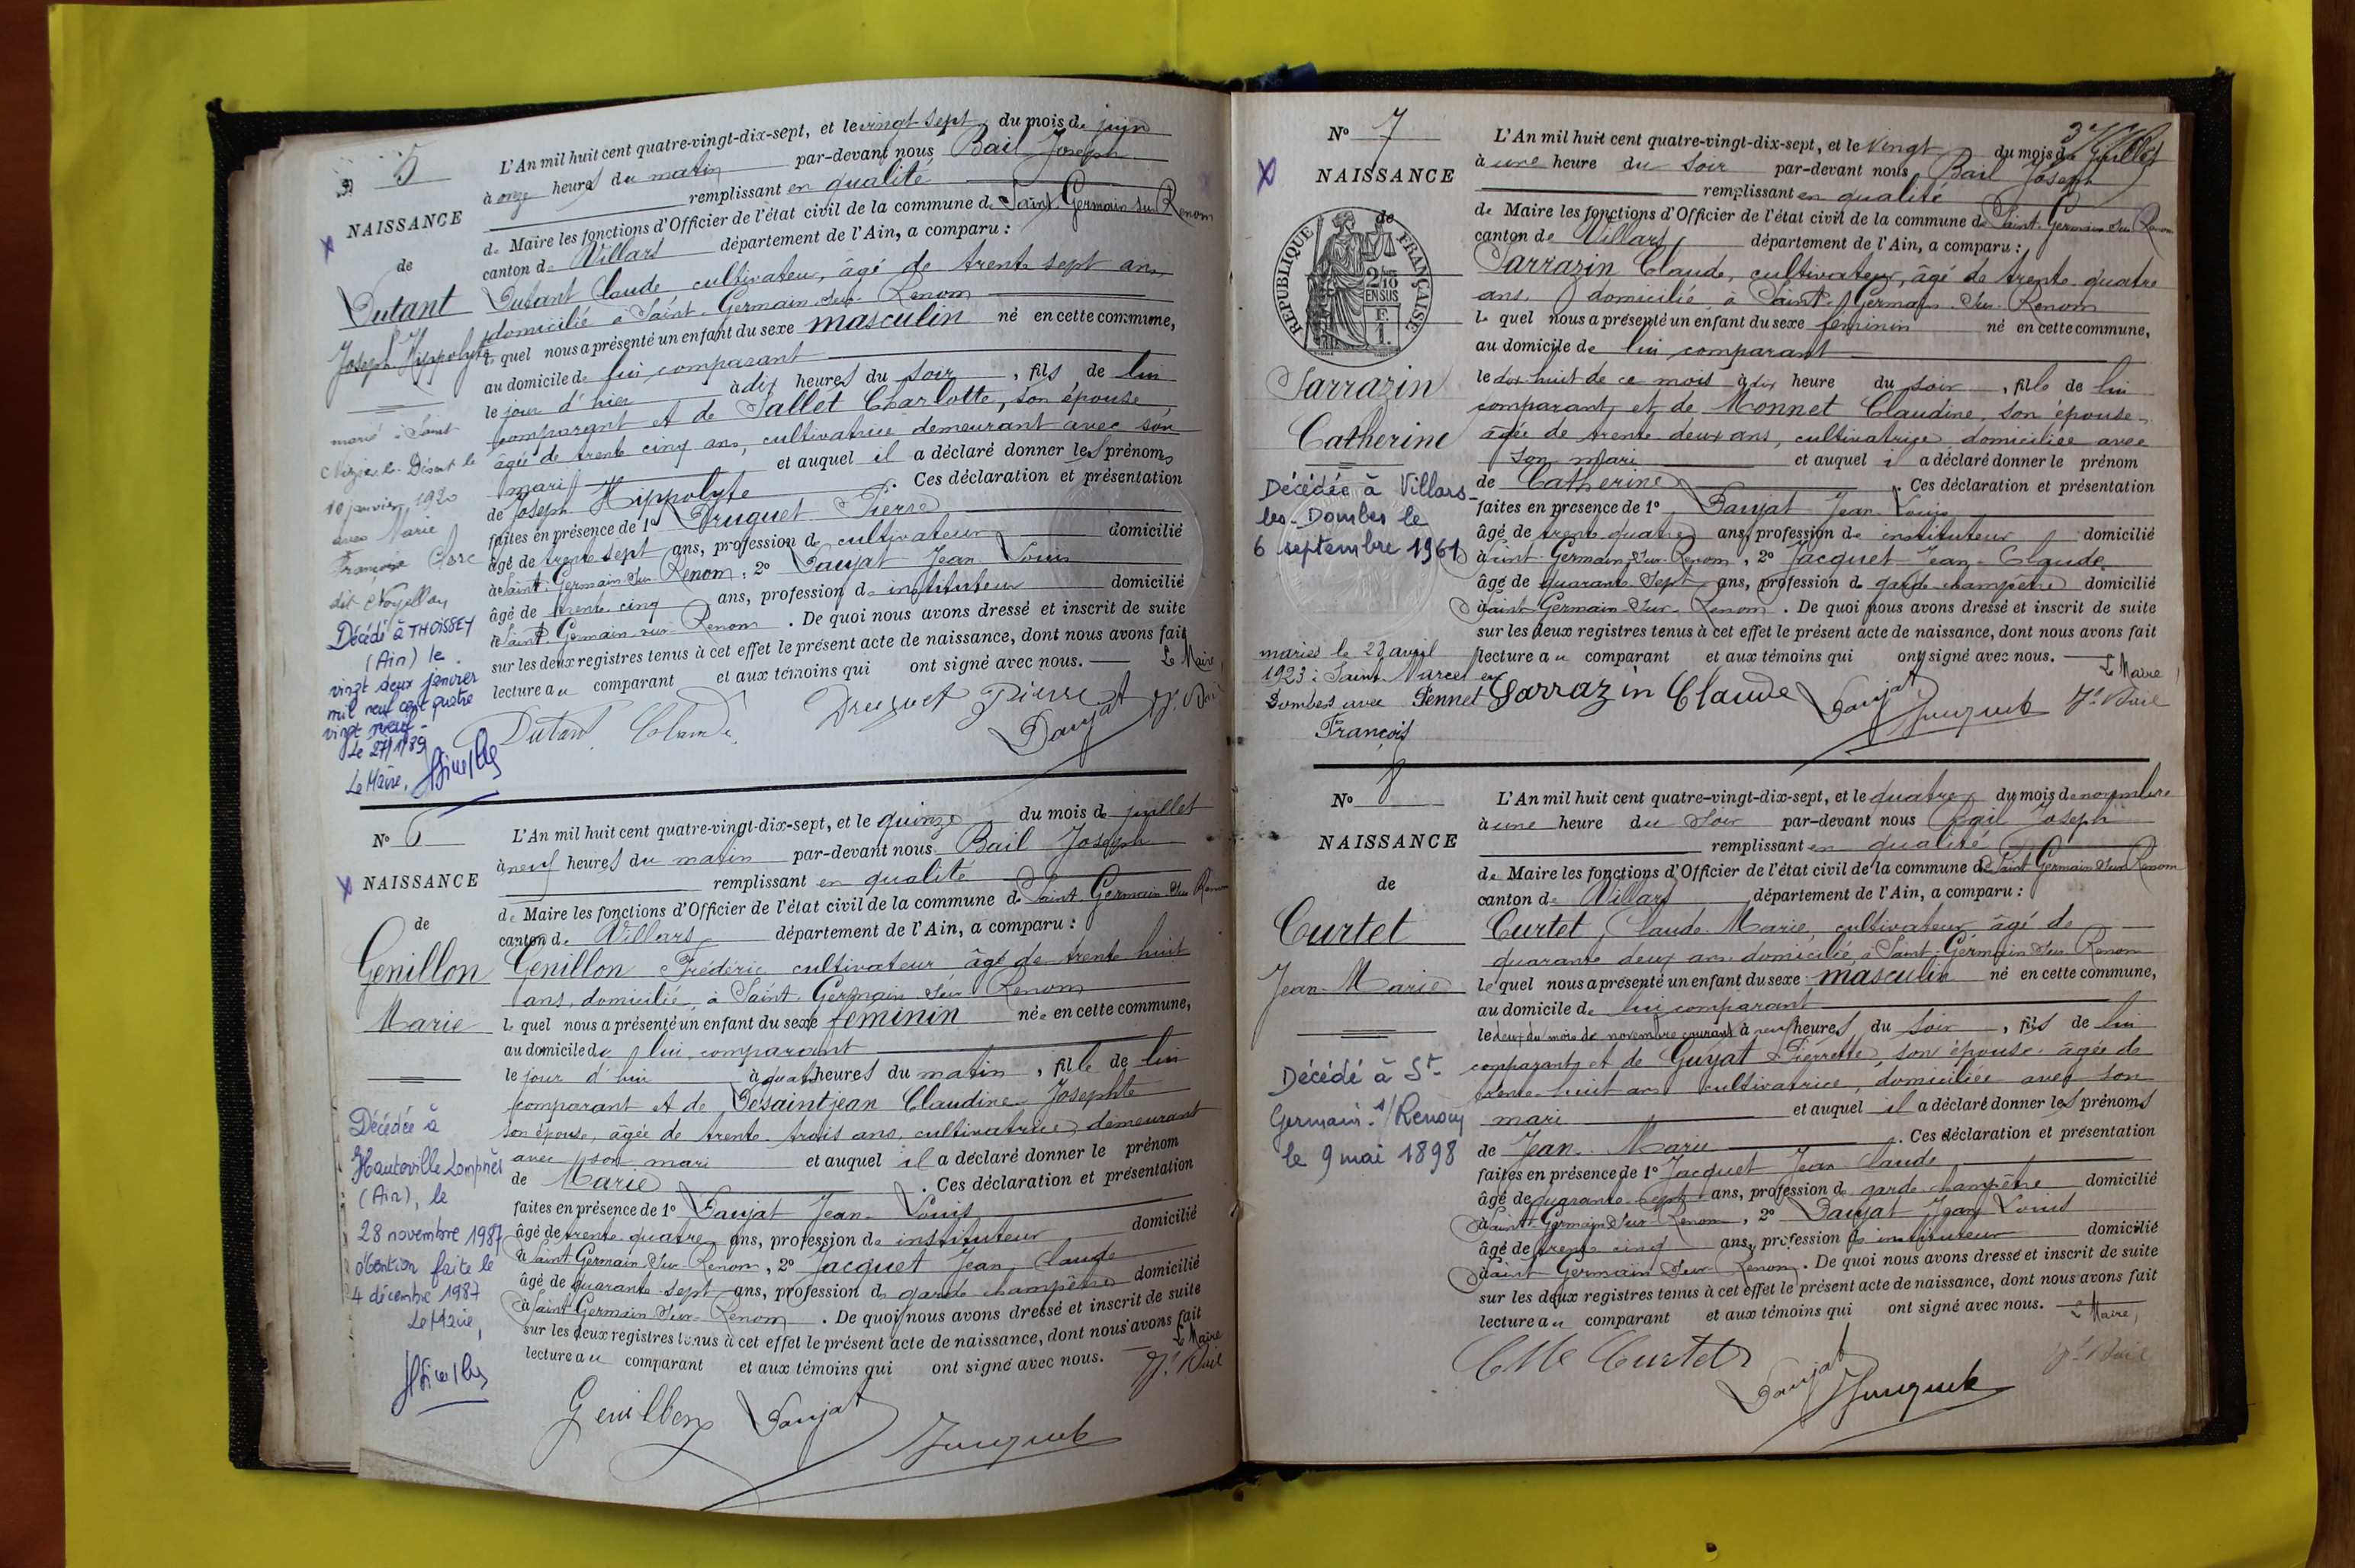 N° 5
NAISSANCE
de
Dutant
Joseph Hippolyte
marié à Saint
Nizier le Désert le
10 janvier 1920
avec Marie
Françoise Clerc
dit
Décédé à THOISSEY
(Ain) le
vingt deux janvier
mil neuf cent quatre
vingt neuf
Le 27/1/89
Le Maire,
L'An mil huit cent quatre-vingt-dix-sept, et le vingt sept du mois de juin
à onze heures du matin par-devant nous Bail Joseph
remplissant en qualité
de Maire les fonctions d'Officier de l'état civil de la commune de Saint Germain sur Renom
canton de Villars département de l'Ain, a comparu :
Dutant Claude cultivateur, âgé de trente sept ans
domicilié à Saint Germain sur Renom
le quel nous a présenté un enfant du sexe masculin né en cette commune,
au domicile de lui comparant
le jour d'hier à dix heures du soir, fils de lui
comparant et de Sallet Charlotte, son épouse
âgée de trente cinq ans, cultivatrice demeurant avec son
mari et auquel il a déclaré donner les prénoms
de Joseph Hippolyte. Ces déclaration et présentation
faites en présence de 1° Druguet Pierre
âgé de trente sept ans, profession de cultivateur domicilié
à Saint Germain sur Renom, 2° Daujat Jean Louis
âgé de trente cinq ans, profession de instituteur domicilié
à Saint Germain sur Renom. De quoi nous avons dressé et inscrit de suite
sur les deux registres tenus à cet effet le présent acte de naissance, dont nous avons fait
lecture au comparant et aux témoins qui ont signé avec nous. Le Maire,
Dutant Claude Druguet Pierre Daujat Jh Bail
N° 6
NAISSANCE
de
Genillon
Marie
Décédée à
Hauteville Lompnès
(Ain), le
28 novembre 1987
Mention faite le
4 décembre 1987
Le Maire,
L'An mil huit cent quatre-vingt-dix-sept, et le quinze du mois de juillet
à neuf heures du matin par-devant nous Bail Joseph
remplissant en qualité
de Maire les fonctions d'Officier de l'état civil de la commune de Saint Germain sur Renom
canton de Villars département de l'Ain, a comparu :
Genillon Frédéric cultivateur âgé de trente huit
ans, domicilié à Saint Germain sur Renom
le quel nous a présenté un enfant du sexe féminin née en cette commune,
au domicile de lui comparant
le jour d'hui à quatre heures du matin, fille de lui
comparant et de Desaintjean Claudine Josephte
son épouse, âgée de trente trois ans, cultivatrice, demeurant
avec son mari et auquel il a déclaré donner le prénom
de Marie. Ces déclaration et présentation
faites en présence de 1° Daujat Jean Louis
âgé de trente quatre ans, profession de instituteur domicilié
à Saint Germain sur Renom, 2° Jacquet Jean Claude
âgé de quarante sept ans, profession de garde champêtre domicilié
à Saint Germain sur Renom. De quoi nous avons dressé et inscrit de suite
sur les deux registres tenus à cet effet le présent acte de naissance, dont nous avons fait
lecture au comparant et aux témoins qui ont signé avec nous. Le Maire
Genillon Daujat Jacquet Jh Bail
N° 7
NAISSANCE
de
REPUBLIQUE FRANÇAISE
2/10
EN SUS
Sarrazin
Catherine
Décédée à Villars-
les-Dombes le
6 septembre 1961
mariée le 28 avril
1923 à Saint Marcel en
Dombes avec Pennet
François
L'An mil huit cent quatre-vingt-dix-sept, et le vingt du mois de juillet
à une heure du soir par-devant nous Bail Joseph
remplissant en qualité
de Maire les fonctions d'Officier de l'état civil de la commune de Saint Germain sur Renom
canton de Villars département de l'Ain, a comparu :
Sarrazin Claude, cultivateur, âgé de trente quatre
ans, domicilié à Saint Germain sur Renom
le quel nous a présenté un enfant du sexe féminin né en cette commune,
au domicile de lui comparant
le dix huit de ce mois à dix heure du soir, fille de lui
comparant, et de Monnet Claudine, son épouse,
âgée de trente deux ans, cultivatrice domiciliée avec
son mari et auquel i a déclaré donner le prénom
de Catherine. Ces déclaration et présentation
faites en présence de 1° Daujat Jean Louis
âgé de trente quatre ans, profession de instituteur domicilié
à Saint Germain sur Renom, 2° Jacquet Jean Claude
âgé de quarante sept ans, profession de garde champêtre domicilié
à Saint Germain sur Renom. De quoi nous avons dressé et inscrit de suite
sur les deux registres tenus à cet effet le présent acte de naissance, dont nous avons fait
lecture au comparant et aux témoins qui ont signé avec nous. Le Maire
Sarrazin Claude Daujat Jacquet Jh Bail
N° 8
NAISSANCE
de
Curtet
Jean Marie
Décédé à St-
Germain s/Renom
le 9 mai 1898
L'An mil huit cent quatre-vingt-dix-sept, et le quatre du mois de novembre
à une heure du soir par-devant nous Bail Joseph
remplissant en qualité
de Maire les fonctions d'Officier de l'état civil de la commune de Saint Germain sur Renom
canton de Villars département de l'Ain, a comparu :
Curtet Claude Marie, cultivateur, âgé de
quarante deux ans domicilié à Saint Germain sur Renom
le quel nous a présenté un enfant du sexe masculin né en cette commune,
au domicile de lui comparant
le deux du mois de novembre courant à neuf heures du soir, fils de lui
comparant, et de Guyat Pierrette, son épouse âgée de
trente huit ans cultivatrice, domiciliée avec son
mari et auquel il a déclaré donner les prénoms
de Jean Marie. Ces déclaration et présentation
faites en présence de 1° Jacquet Jean Claude
âgé de quarante sept ans, profession de garde champêtre domicilié
à Saint Germain sur Renom, 2° Daujat Jean Louis
âgé de trente cinq ans, profession de instituteur domicilié
à Saint Germain sur Renom. De quoi nous avons dressé et inscrit de suite
sur les deux registres tenus à cet effet le présent acte de naissance, dont nous avons fait
lecture au comparant et aux témoins qui ont signé avec nous. Le Maire,
C M Curtet Daujat Jacquet Jh Bail